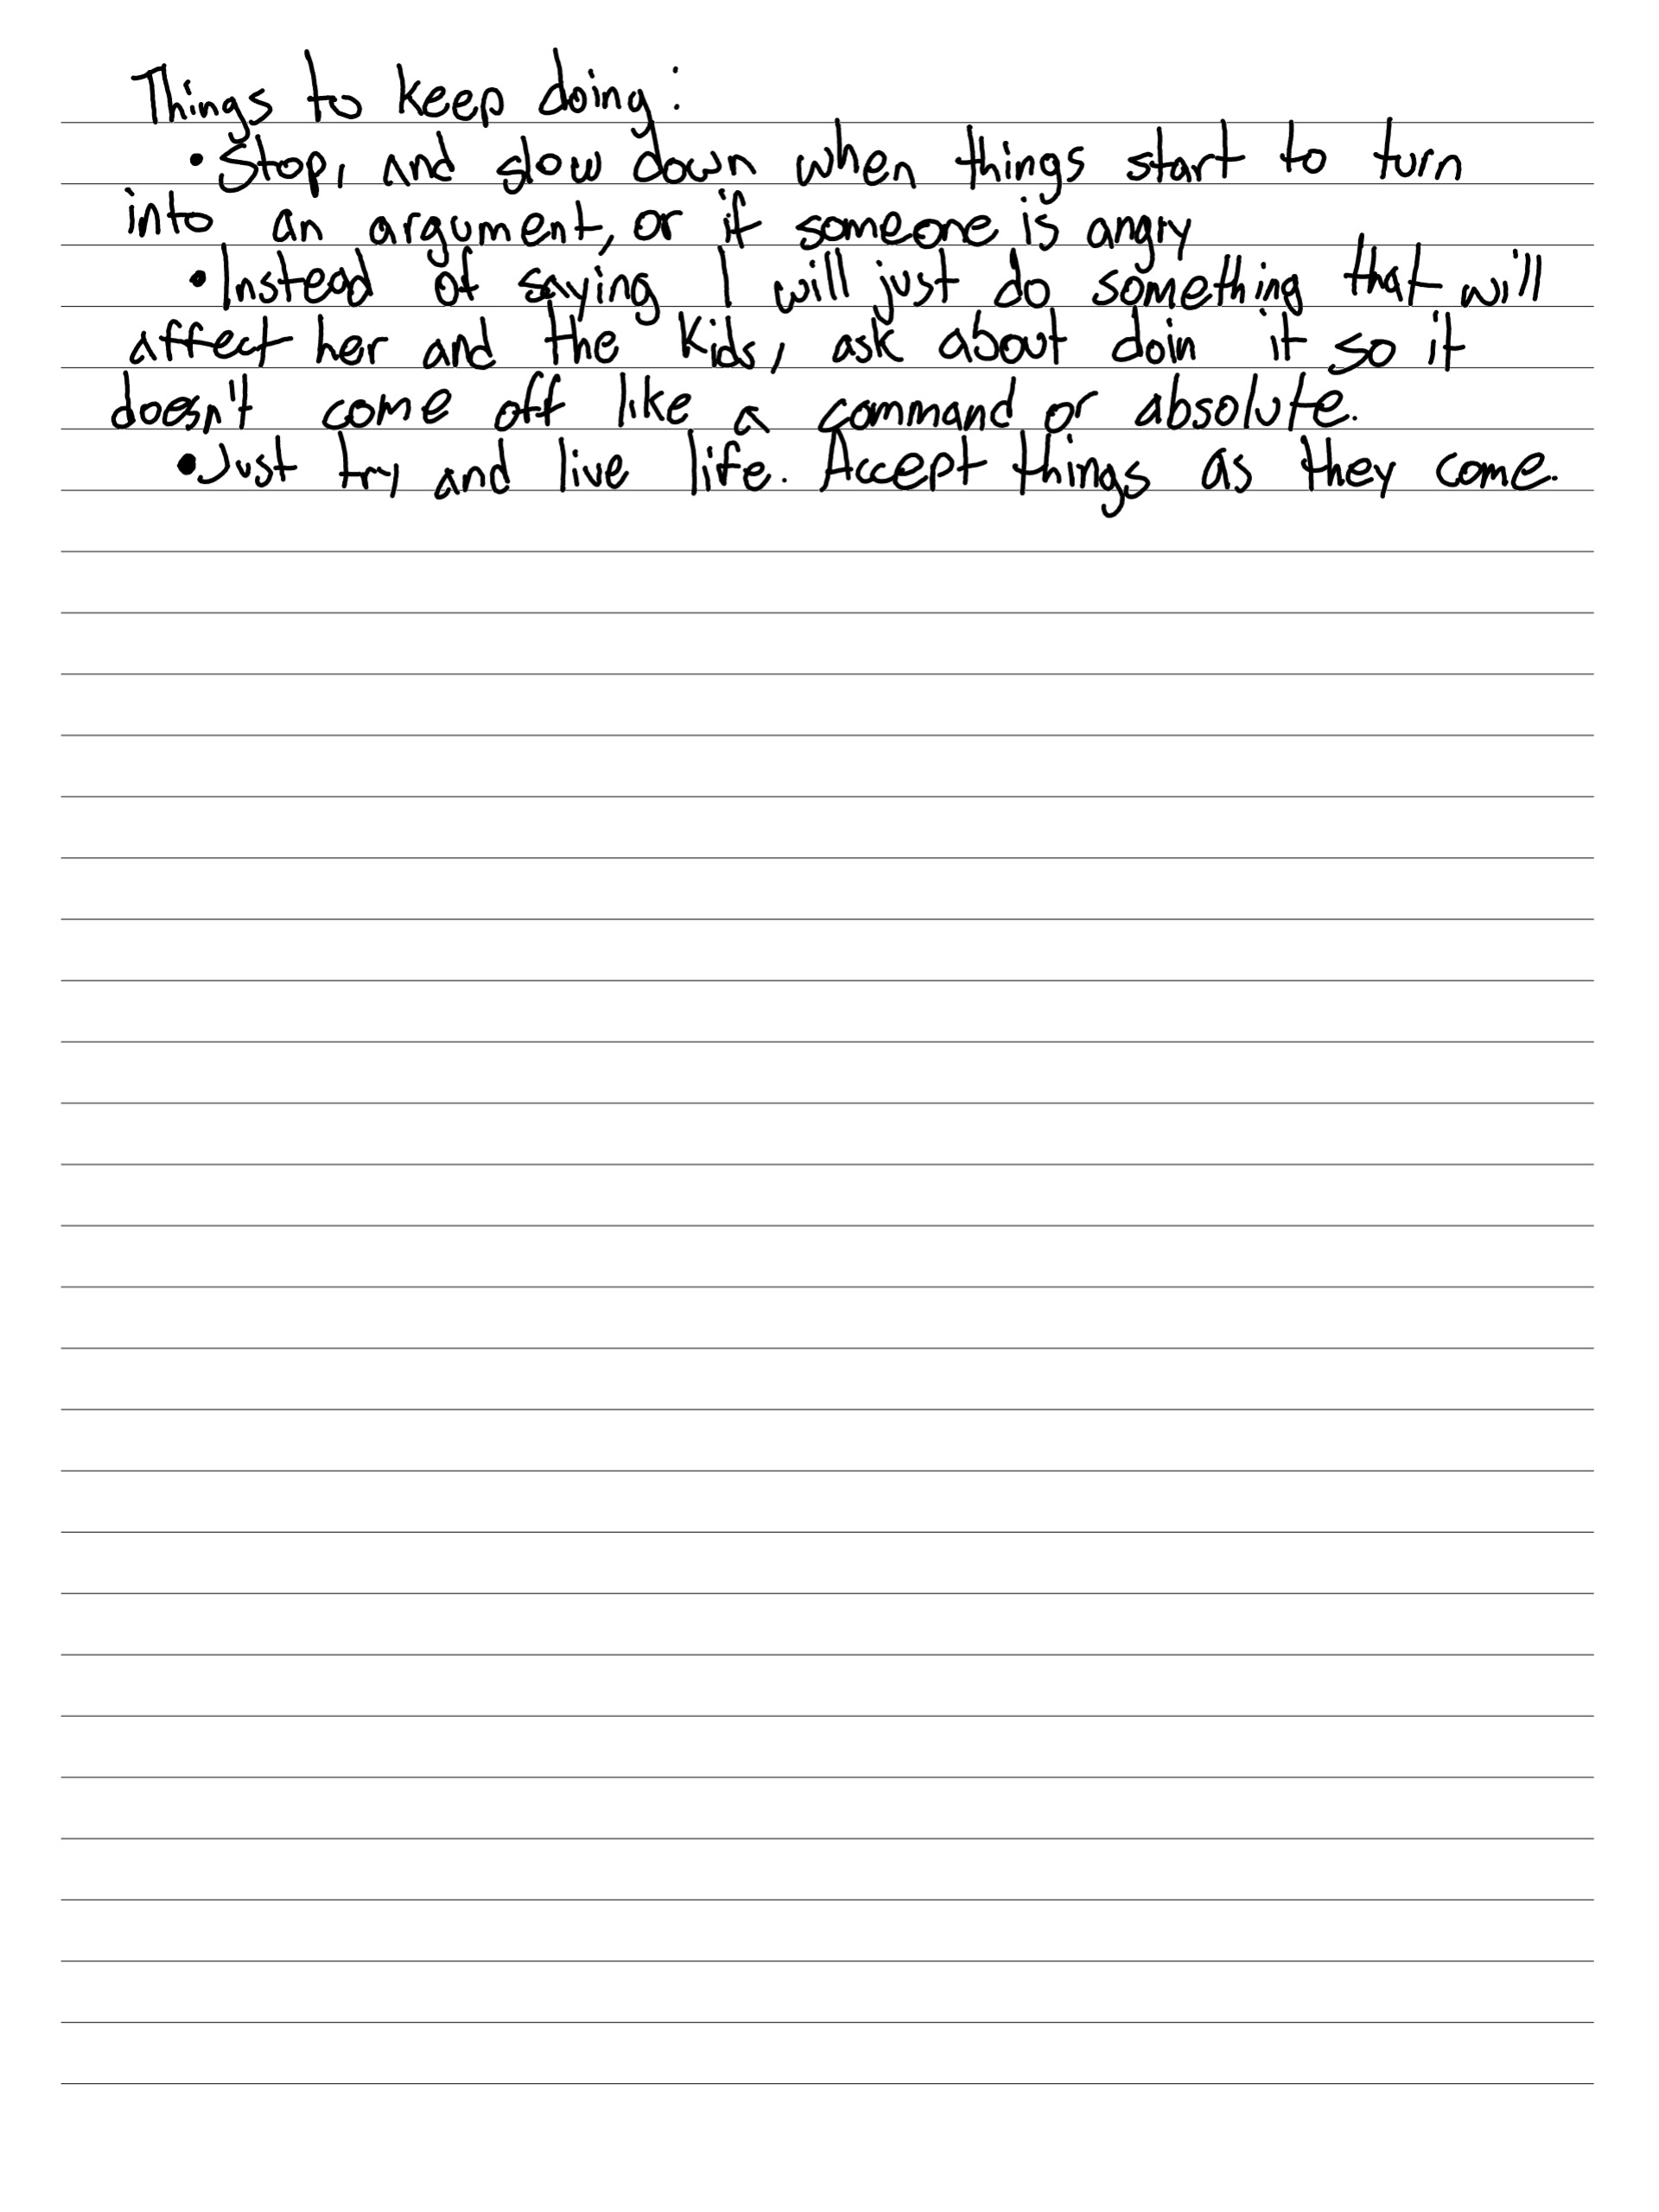 Things to keep doing:
•Stop, and slow down when things start to turn
into an argument, or if someone is angry
•Instead of saying I will just do something that will
affect her and the kids, ask about doin it so it
doesn't come off like a command or absolute.
•Just try and live life. Accept things as they come.